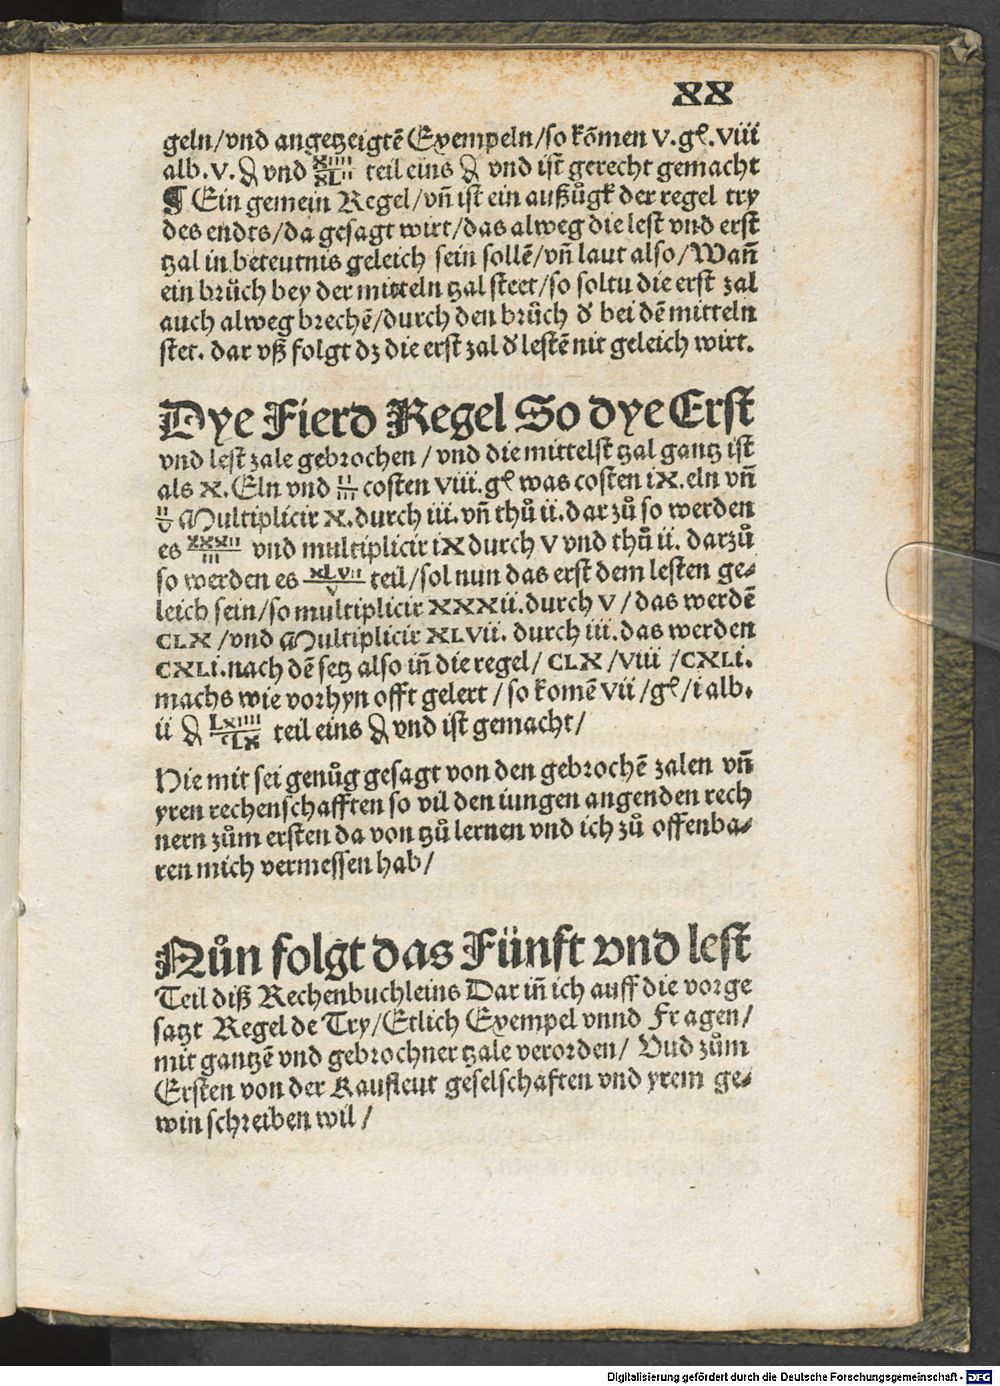 XX
geln/vnd angetzeigtē Exempeln/so kōmen v.gl.viii
alb.v.₰ vnd xiiii/xLii teil eins ₰ vnd ist gerecht gemacht
¶ Ein gemein Regel/vn̄ ist ein außzůgk der regel try
des endts/da gesagt wirt/das alweg die lest vnd erst
tzal in beteutnis geleich sein sollē/vn̄ laut also/Wan̄
ein brůch bey der mitteln tzal steet/so soltu die erst zal
auch alweg brechē/durch den brůch d' bei dē mitteln
stet. dar vß folgt dz die erst zal d' lestē nit geleich wirt.
Dye Fierd Regel So dye Erst
vnd lest zale gebrochen / vnd die mittelst tzal gantz ist
als x. Eln vnd ii/iii costen viii.gl was costen ix.eln vn̄
ii/v Multiplicir x.durch iii.vn̄ thů ii.dar zů so werden
es xxxii/iii vnd multiplicir ix durch v vnd thů ii. darzů
so werden es xLvii/v teil/sol nun das erst dem lesten ge⸗
leich sein/so multiplicir xxxii.durch v / das werdē
CLX /vnd Multiplicir XLvii. durch iii.das werden
CXLi.nach dē setz also in̄ die regel/ CLX /viii /CXLi.
machs wie vorhyn offt gelert / so komē vii /gl/i alb.
ii ₰ Lxiiii/cLx teil eins ₰ vnd ist gemacht/
Hie mit sei genůg gesagt von den gebrochē zalen vn̄
yren rechenschafften so vil den iungen angenden rech
nern zům ersten da von tzů lernen vnd ich zů offenba⸗
ren mich vermessen hab/
Nůn folgt das Fünft vnd lest
Teil diß Rechenbuchleins Dar in̄ ich auff die vorge
satzt Regel de Try/Etlich Exempel vnnd Fragen/
mit gantzē vnd gebrochner tzale verorden/ Vnd zům
Ersten von der Kaufleut geselschaften vnd yrem ge⸗
win schreiben wil /
Digitalisierung gefördert durch die Deutsche Forschungsgemeinschaft - DFG